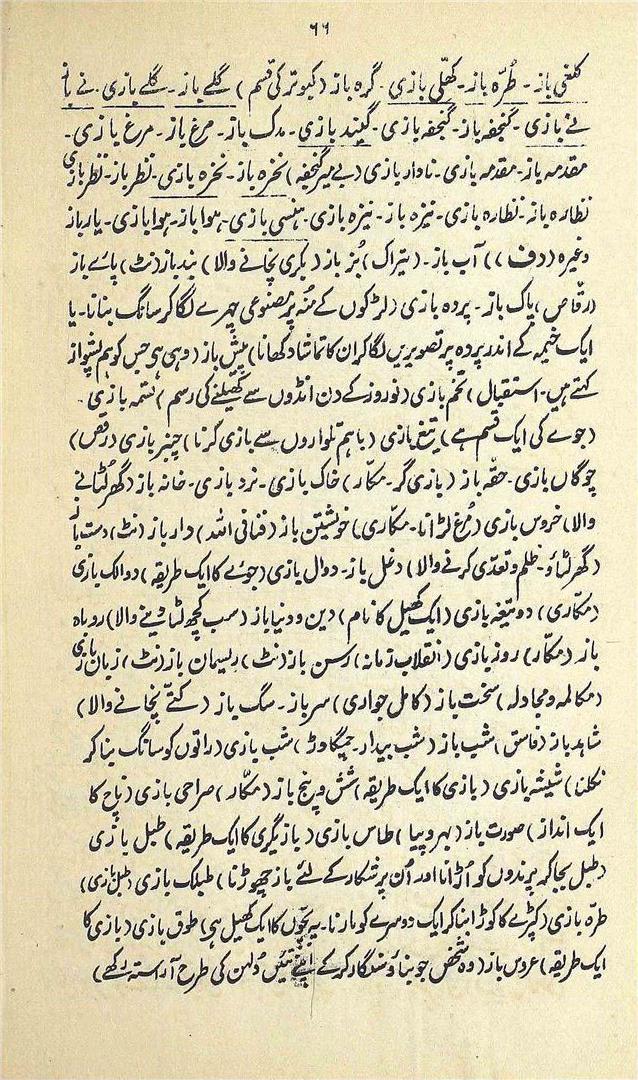 ۶۶
کلغی باز۔ طُرّہ باز۔ کھلّی بازی۔ گرہ باز (کبوتر کی قسم) گلے باز۔ گلے بازی۔ نے باز
نے بازی۔ گنجفہ باز۔ گنجفہ بازی۔ گیند بازی۔ مدک باز۔ مرغ باز۔ مرغ بازی۔
مقدمہ باز۔ مقدمہ بازی۔ ناوار بازی (بے میر گنجفہ) نخرہ باز۔ نخرہ بازی۔ نظر باز۔ نظر بازی
نظارہ باز۔ نظارہ بازی۔ نیزہ باز۔ نیزہ بازی۔ ہنسی بازی۔ ہوا باز۔ ہوا بازی۔ یار باز
وغیرہ (دف)) آب باز۔ (تیراک) بُز باز (بکری نچانے والا) بند باز (نٹ) پائے باز
(رقاص) پاک باز۔ پردہ بازی (لڑکوں کے منہ پر مصنوعی چہرے لگا کر سانگ بنانا۔ یا
ایک خیمہ کے اندر پردہ پر تصویریں لگا کر ان کا تماشا دکھانا) پیش باز (وہی ہی جس کو ہم پشواز
کہتے ہیں۔ استقبال) تخم بازی (نوروز کے دن انڈوں سے کھیلنے کی رسم) تسمہ بازی۔
(جوے کی ایک قسم ہے) تیغ بازی (باہم تلواروں سے بازی کرنا) چنبر بازی (رقص)
چوگاں بازی۔ حقہ باز (بازی گر۔ مکّار) خاک بازی۔ نرد بازی۔ خانہ باز (گھر لٹانے
والا) خروس بازی (مُرغ لڑانا۔ مکّاری) خویشتن باز (فنافی اللہ) دار باز (نٹ) دست باز
(گھر لٹاؤ۔ ظلم و تعدّی کرنے والا) دغل باز۔ دوال بازی (جوئے کا ایک طریقہ) دوالک بازی
(مکّاری) دو تیغہ بازی (ایک کھیل کا نام) دین و دنیا باز (سب کچھ لٹا دینے والا) روباہ
باز (مکّار) روز بازی (انقلاب زمانہ) رسن باز (نٹ) ریسمان باز (نٹ) زبان بازی
(مکالمہ و مجادلہ) سخت باز (کامل جواری) سرباز۔ سگ باز (کتّے نچانے والا)
شاہد باز (فاسق) شب باز (شب بیدار۔ چمگادڑ) شب بازی (راتوں کو سانگ بنا کر
نکلنا) شیشہ بازی (بازی کا ایک طریقہ) شش و پنج باز (مکّار) صراحی بازی (ناچ کا
ایک انداز) صورت باز (بہروپیا) طاس بازی (بازیگری کا ایک طریقہ) طبل بازی
(طبل بجا کر پرندوں کو اُڑانا اور اُن پر شکار کے لئے باز چھوڑنا) طبلک بازی (طبل بازی)
طرّہ بازی (کپڑے کا کوڑا بنا کر ایک دوسرے کو مارنا۔ یہ بچّوں کا ایک کھیل ہی) طوق بازی (بازی کا
ایک طریقہ) عروس باز (وہ شخص جو بناؤ سنگار کر کے اپنے تئیں دُلہن کی طرح آراستہ رکھے)